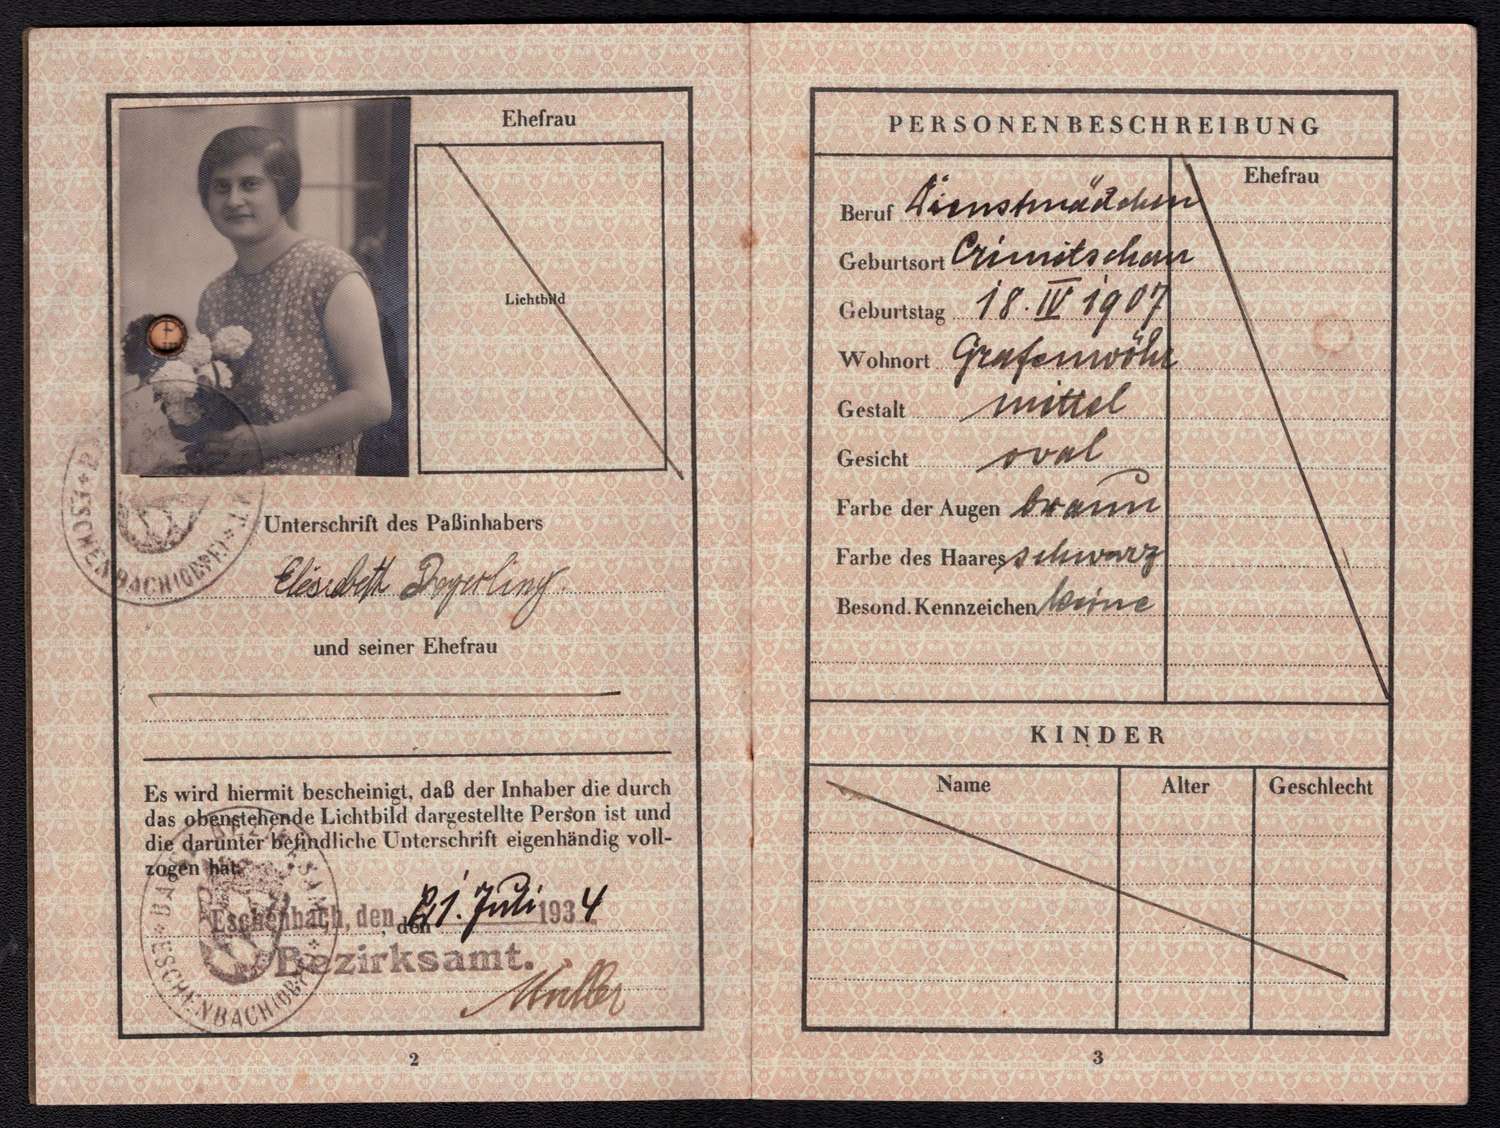 Ehefrau
Lichtbild
BEZIRKSAMT
ESCHENBACH (OBPF.)
Unterschrift des Paßinhabers
Elisabeth
und seiner Ehefrau
Es wird hiermit bescheinigt, daß der Inhaber die durch
das obenstehende Lichtbild dargestellte Person ist und
die darunter befindliche Unterschrift eigenhändig voll-
zogen hat.
Eschenbach, den, den 21. Juli 1934
Bezirksamt.
Müller
BAY. BEZIRKSAMT
ESCHENBACH (OBPF.)
2
PERSONENBESCHREIBUNG
Ehefrau
Beruf Dienstmädchen
Geburtsort Crimitschau
Geburtstag 18. IV 1907
Wohnort Grafenwöhr
Gestalt mittel
Gesicht oval
Farbe der Augen braun
Farbe des Haares schwarz
Besond. Kennzeichen keine
KINDER
Name Alter Geschlecht
3